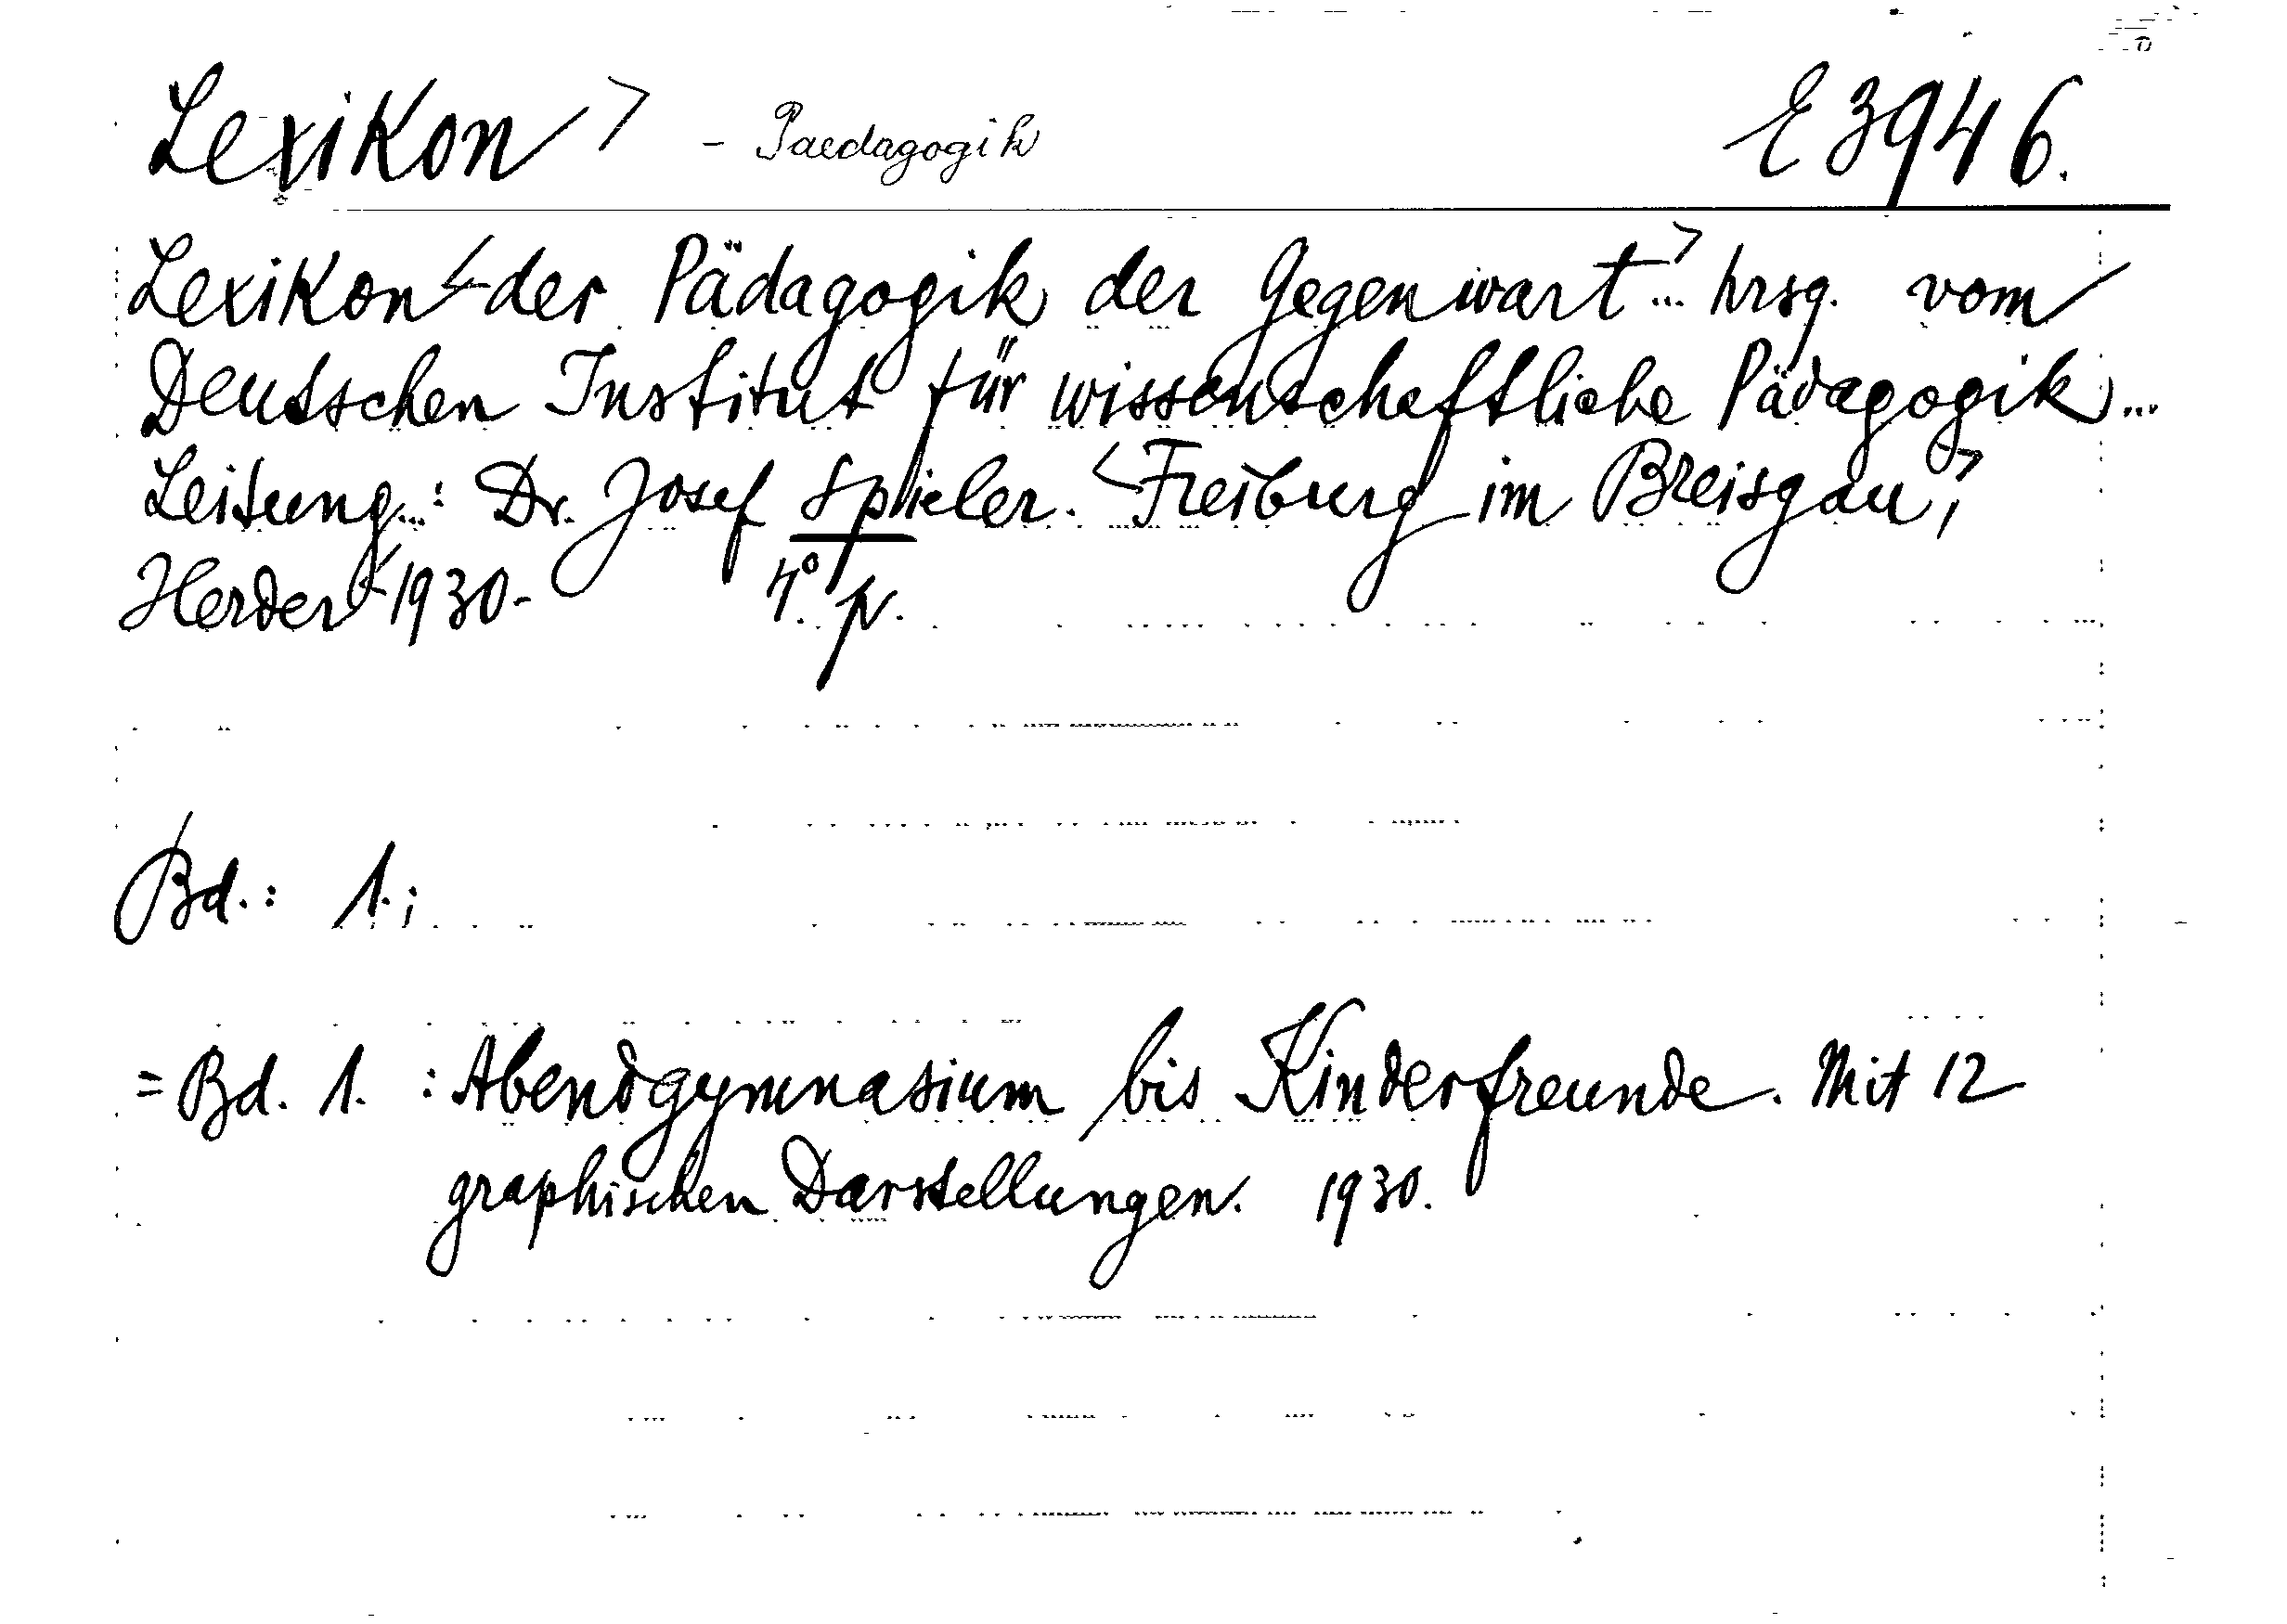 Lexikon > - Paedagogik E 3946.
Lexikon < der Pädagogik der Gegenwart...> hrsg. vom
Deutschen Institut für wissenschaftliche Pädagogik...
Leitung...: Dr. Josef Spieler. <Freiburg im Breisgau;>
Herder < 1930- 4° p.
Bd.: 1.;
= Bd. 1. : Abendgymnasium bis Kinderfreunde. Mit 12
graphischen Darstellungen. 1930.